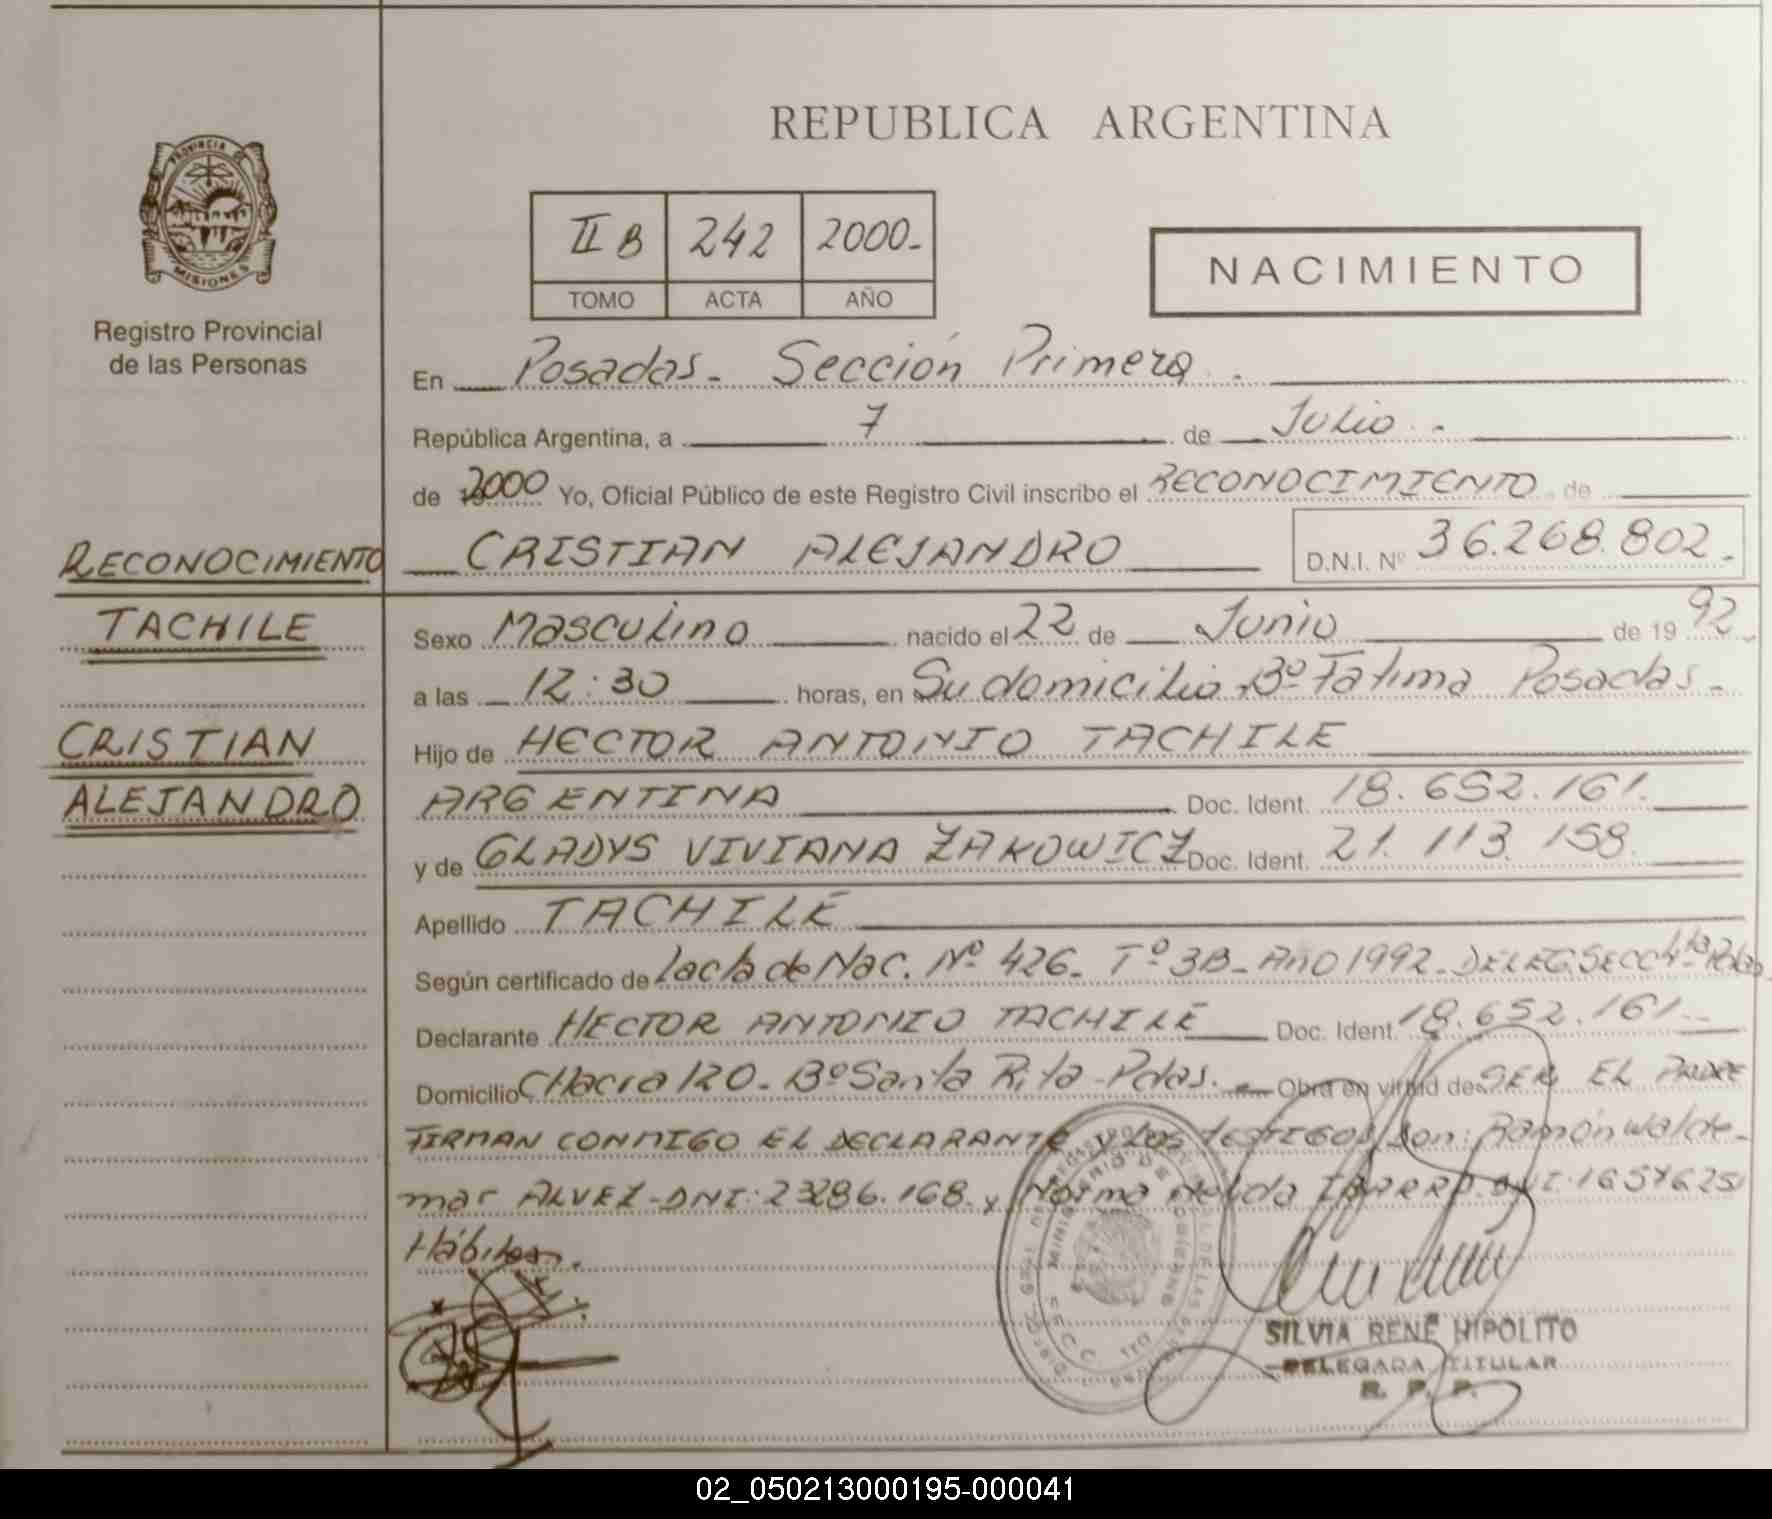 REPUBLICA ARGENTINA
PROVINCIA DE
MISIONES
Registro Provincial
de las Personas
II B 242 2000-
TOMO ACTA AÑO
NACIMIENTO
En Posadas- Sección Primera.
República Argentina, a 7 de Julio.-
de 2000 Yo, Oficial Público de este Registro Civil inscribo el RECONOCIMIENTO de
CRISTIAN ALEJANDRO D.N.I. Nº 36.268.802.-
RECONOCIMIENTO
TACHILE
CRISTIAN
ALEJANDRO
Sexo Masculino nacido el 22 de Junio de 19 92-
a las 12:30 horas, en Su domicilio Bº Fatima Posadas-
Hijo de HECTOR ANTONIO TACHILE
ARGENTINA Doc. Ident. 18.652.161.
y de GLADYS VIVIANA ZAKOWICZ Doc. Ident. 21.113.158.
Apellido TACHILE
Según certificado de acta de Nac. Nº 426- Tº 3B- Año 1992- DELEG. SECC 4ta
Declarante HECTOR ANTONIO TACHILE Doc. Ident. 18.652.161.-
Domicilio CHacra 120- Bº Santa Rita-Pdas.- Obra en virtud de SER EL PADRE
FIRMAN CONMIGO EL DECLARANTE y Los TESTIGOS Son: Ramón Walde-
mar ALVEZ-DNI: 23286.168. y Norma IBARRA DNI:
Hábiles.
MINISTERIO DE GOBIERNO
SILVIA RENÉ HIPOLITO
DELEGADA TITULAR
R. P. P.
02_050213000195-000041